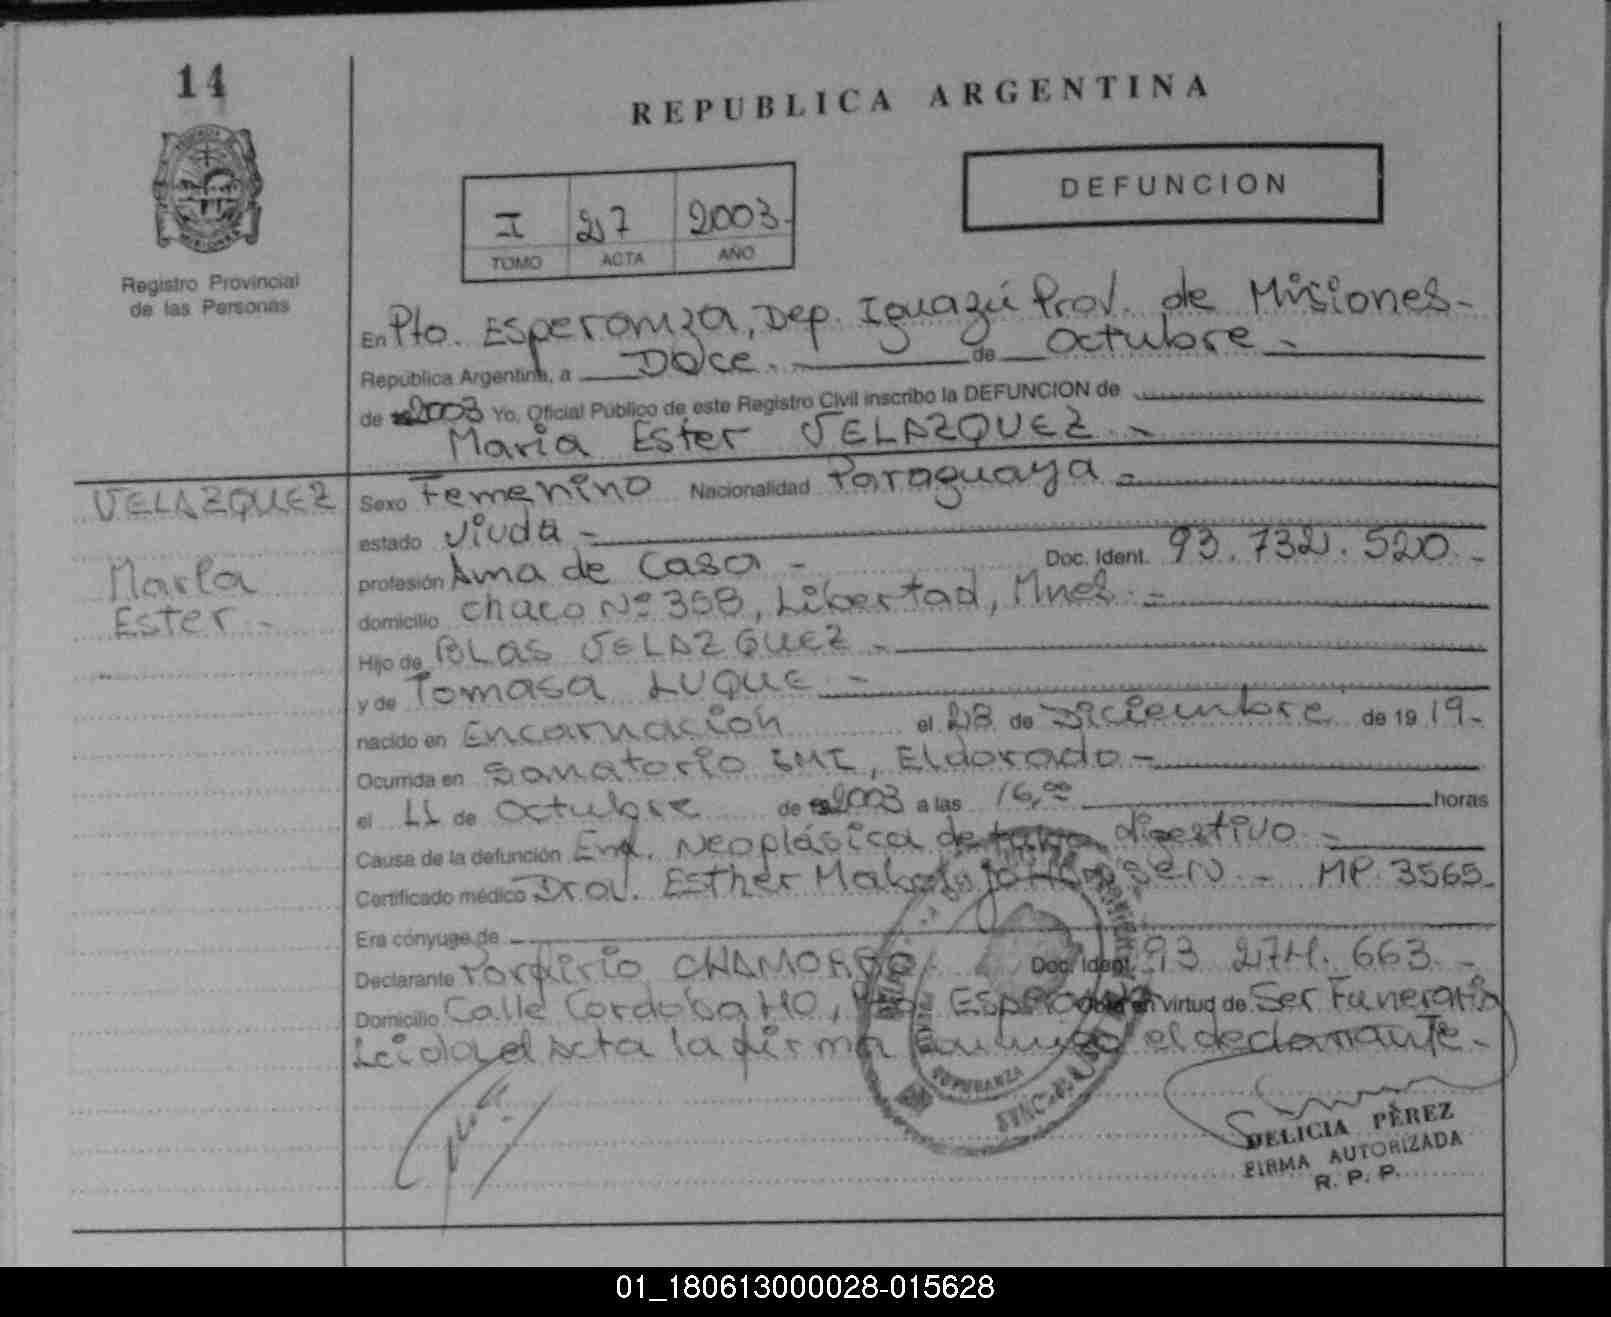 14
REPUBLICA ARGENTINA
DEFUNCION
I 27 2003.-
TOMO ACTA AÑO
Registro Provincial
de las Personas
En Pto. Esperanza, Dep. Iguazú Prov. de Misiones-
República Argentina, a Doce.- de Octubre -
de 2003 Yo, Oficial Público de este Registro Civil inscribo la DEFUNCION de
Maria Ester VELAZQUEZ -
VELAZQUEZ
María
Ester -
Sexo Femenino Nacionalidad Paraguaya -
estado Viuda -
profesión Ama de Casa - Doc. Ident. 93.732.520.-
domicilio Chaco Nº 358, Libertad, Mnes.-
Hijo de BLAS VELAZQUEZ -
y de Tomasa LUQUE -
nacido en Encarnación el 28 de Diciembre de 1919.-
Ocurrida en Sanatorio IMI, Eldorado -
el 11 de Octubre de 2003 a las 16,00 horas
Causa de la defunción Enf. Neoplásica de digestivo -
Certificado médico Dra. Esther - MP. 3565.
Era cónyuge de -
Declarante Porfirio CHAMORRO Doc. Ident. 93 274. 663 -
Domicilio Calle Cordoba 40, Pto. Esperanza en virtud de Ser Funerario
Leida el Acta la firma conmigo el declarante.-
ESPERANZA
DELICIA PÈREZ
FIRMA AUTORIZADA
R. P. P.
01_180613000028-015628